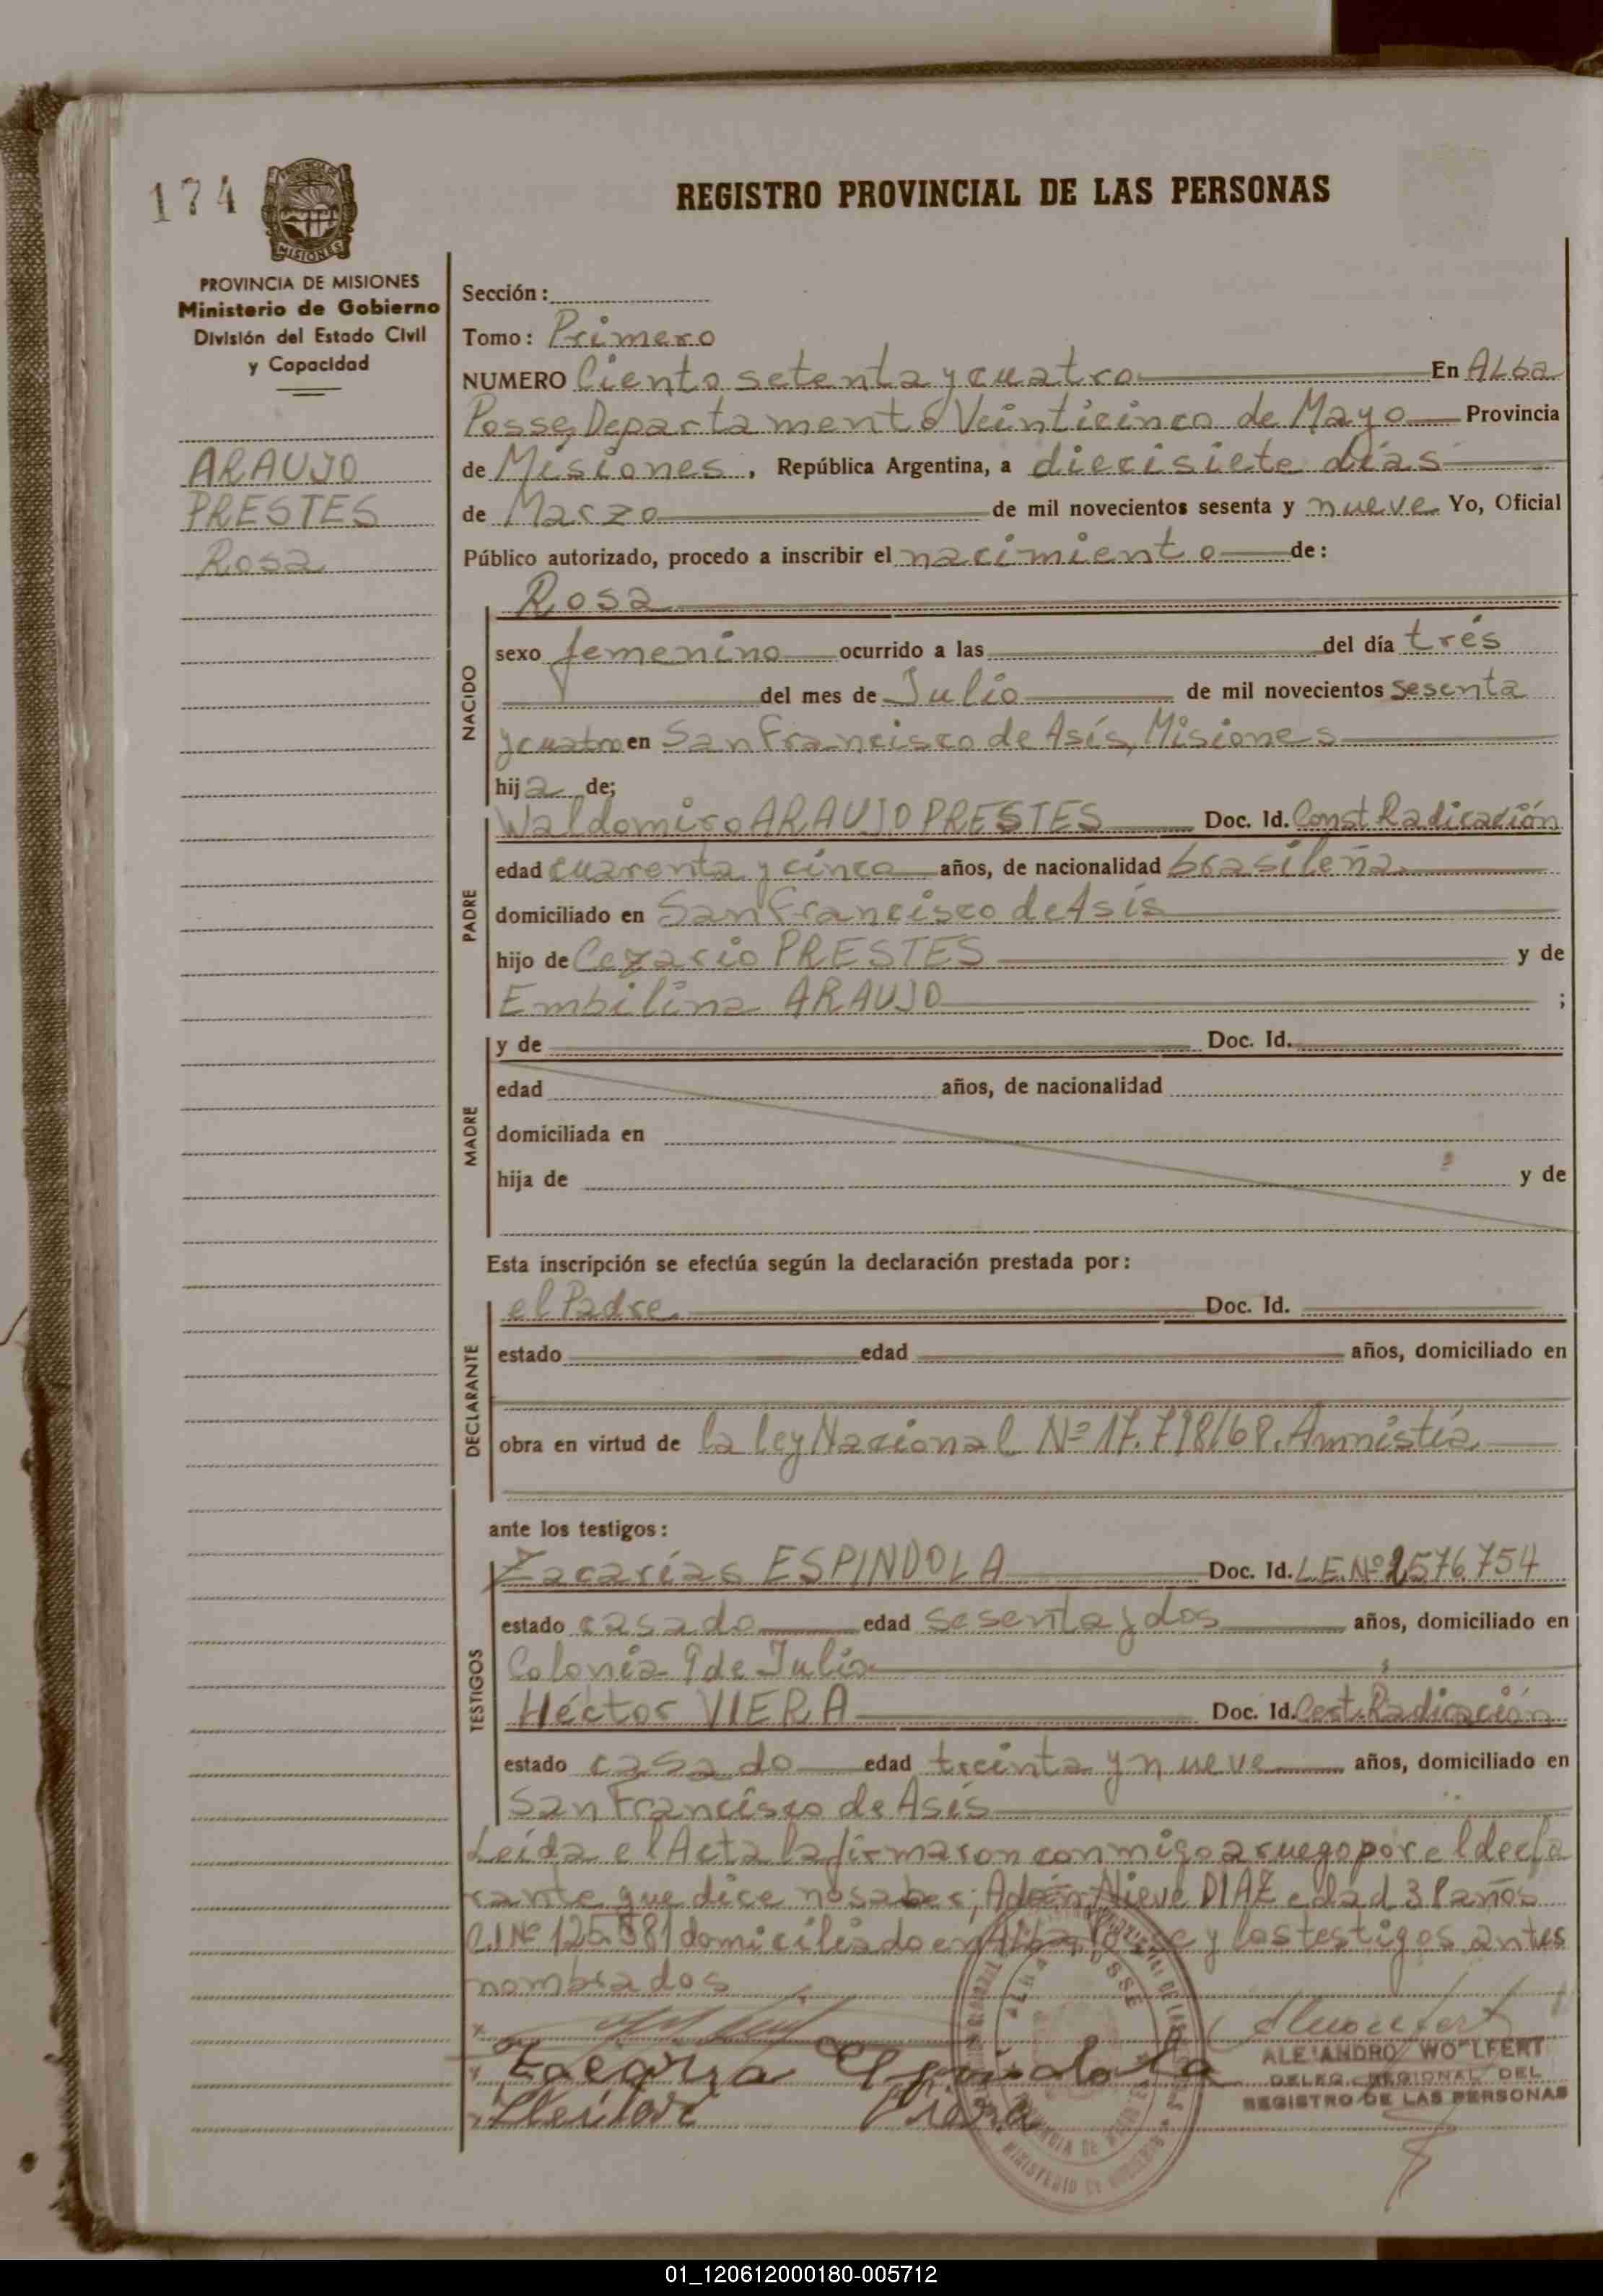 174
PROVINCIA DE MISIONES
REGISTRO PROVINCIAL DE LAS PERSONAS
PROVINCIA DE MISIONES
Ministerio de Gobierno
División del Estado Civil
y Capacidad
ARAUJO
PRESTES
Rosa
Sección:
Tomo: Primero
NUMERO Ciento setenta y cuatro En ALba
Posse, Departamento Veinticinco de Mayo Provincia
de Misiones, República Argentina, a diecisiete días
de Marzo de mil novecientos sesenta y nueve Yo, Oficial
Público autorizado, procedo a inscribir el nacimiento de:
NACIDO
Rosa
sexo femenino ocurrido a las del día tres
del mes de Julio de mil novecientos sesenta
y cuatro en San Francisco de Asís, Misiones
hija de;
PADRE
Waldomiro ARAUJO PRESTES Doc. Id. Const. Radicación
edad cuarenta y cinco años, de nacionalidad brasileña
domiciliado en San Francisco de Asís
hijo de Cezario PRESTES y de
Embilina ARAUJO ;
MADRE
y de Doc. Id.
edad años, de nacionalidad
domiciliada en
hija de y de
Esta inscripción se efectúa según la declaración prestada por:
DECLARANTE
el Padre Doc. Id.
estado edad años, domiciliado en
obra en virtud de la Ley Nacional Nº 17.718/68. Amnistía
ante los testigos:
TESTIGOS
Zacarías ESPINDOLA Doc. Id. L.E.Nº 2576.754
estado casado edad sesenta y dos años, domiciliado en
Colonia 9 de Julio
Héctor VIERA Doc. Id. Cert. Radicación
estado casado edad treinta y nueve años, domiciliado en
San Francisco de Asís
Leída el Acta la firmaron conmigo a ruego por el decla
rante que dice no saber; Nieve DIAZ edad 38 años
C.I Nº 125.581 domiciliado en Alba Posse y los testigos antes
nombrados
Zacaria Espindola
Heitor Viera
ALBA POSSE
ALEJANDRO WOLFERT
DELEG. REGIONAL DEL
REGISTRO DE LAS PERSONAS
01_120612000180-005712